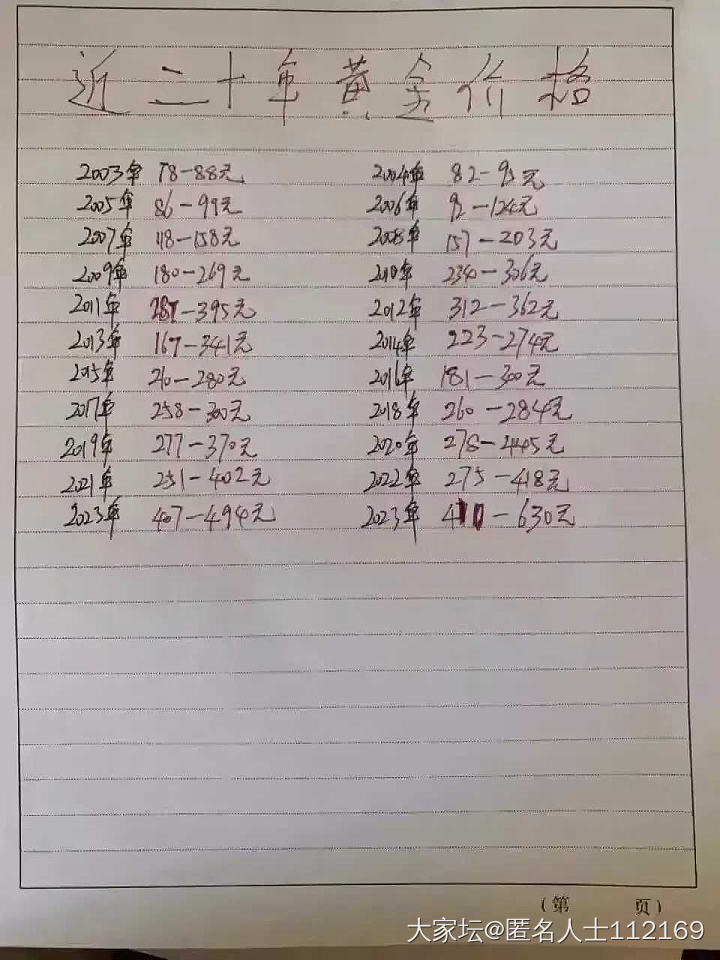 近二十年黄金价格
2003年 78-88元 2004年 82-95元
2005年 86-99元 2006年 92-124元
2007年 118-158元 2008年 157-203元
2009年 180-269元 2010年 234-306元
2011年 287-395元 2012年 312-362元
2013年 167-341元 2014年 223-274元
2015年 210-280元 2016年 181-300元
2017年 258-300元 2018年 260-284元
2019年 277-370元 2020年 278-445元
2021年 251-402元 2022年 275-418元
2023年 407-494元 2023年 410-630元
(第 页)
大家坛@匿名人士112169